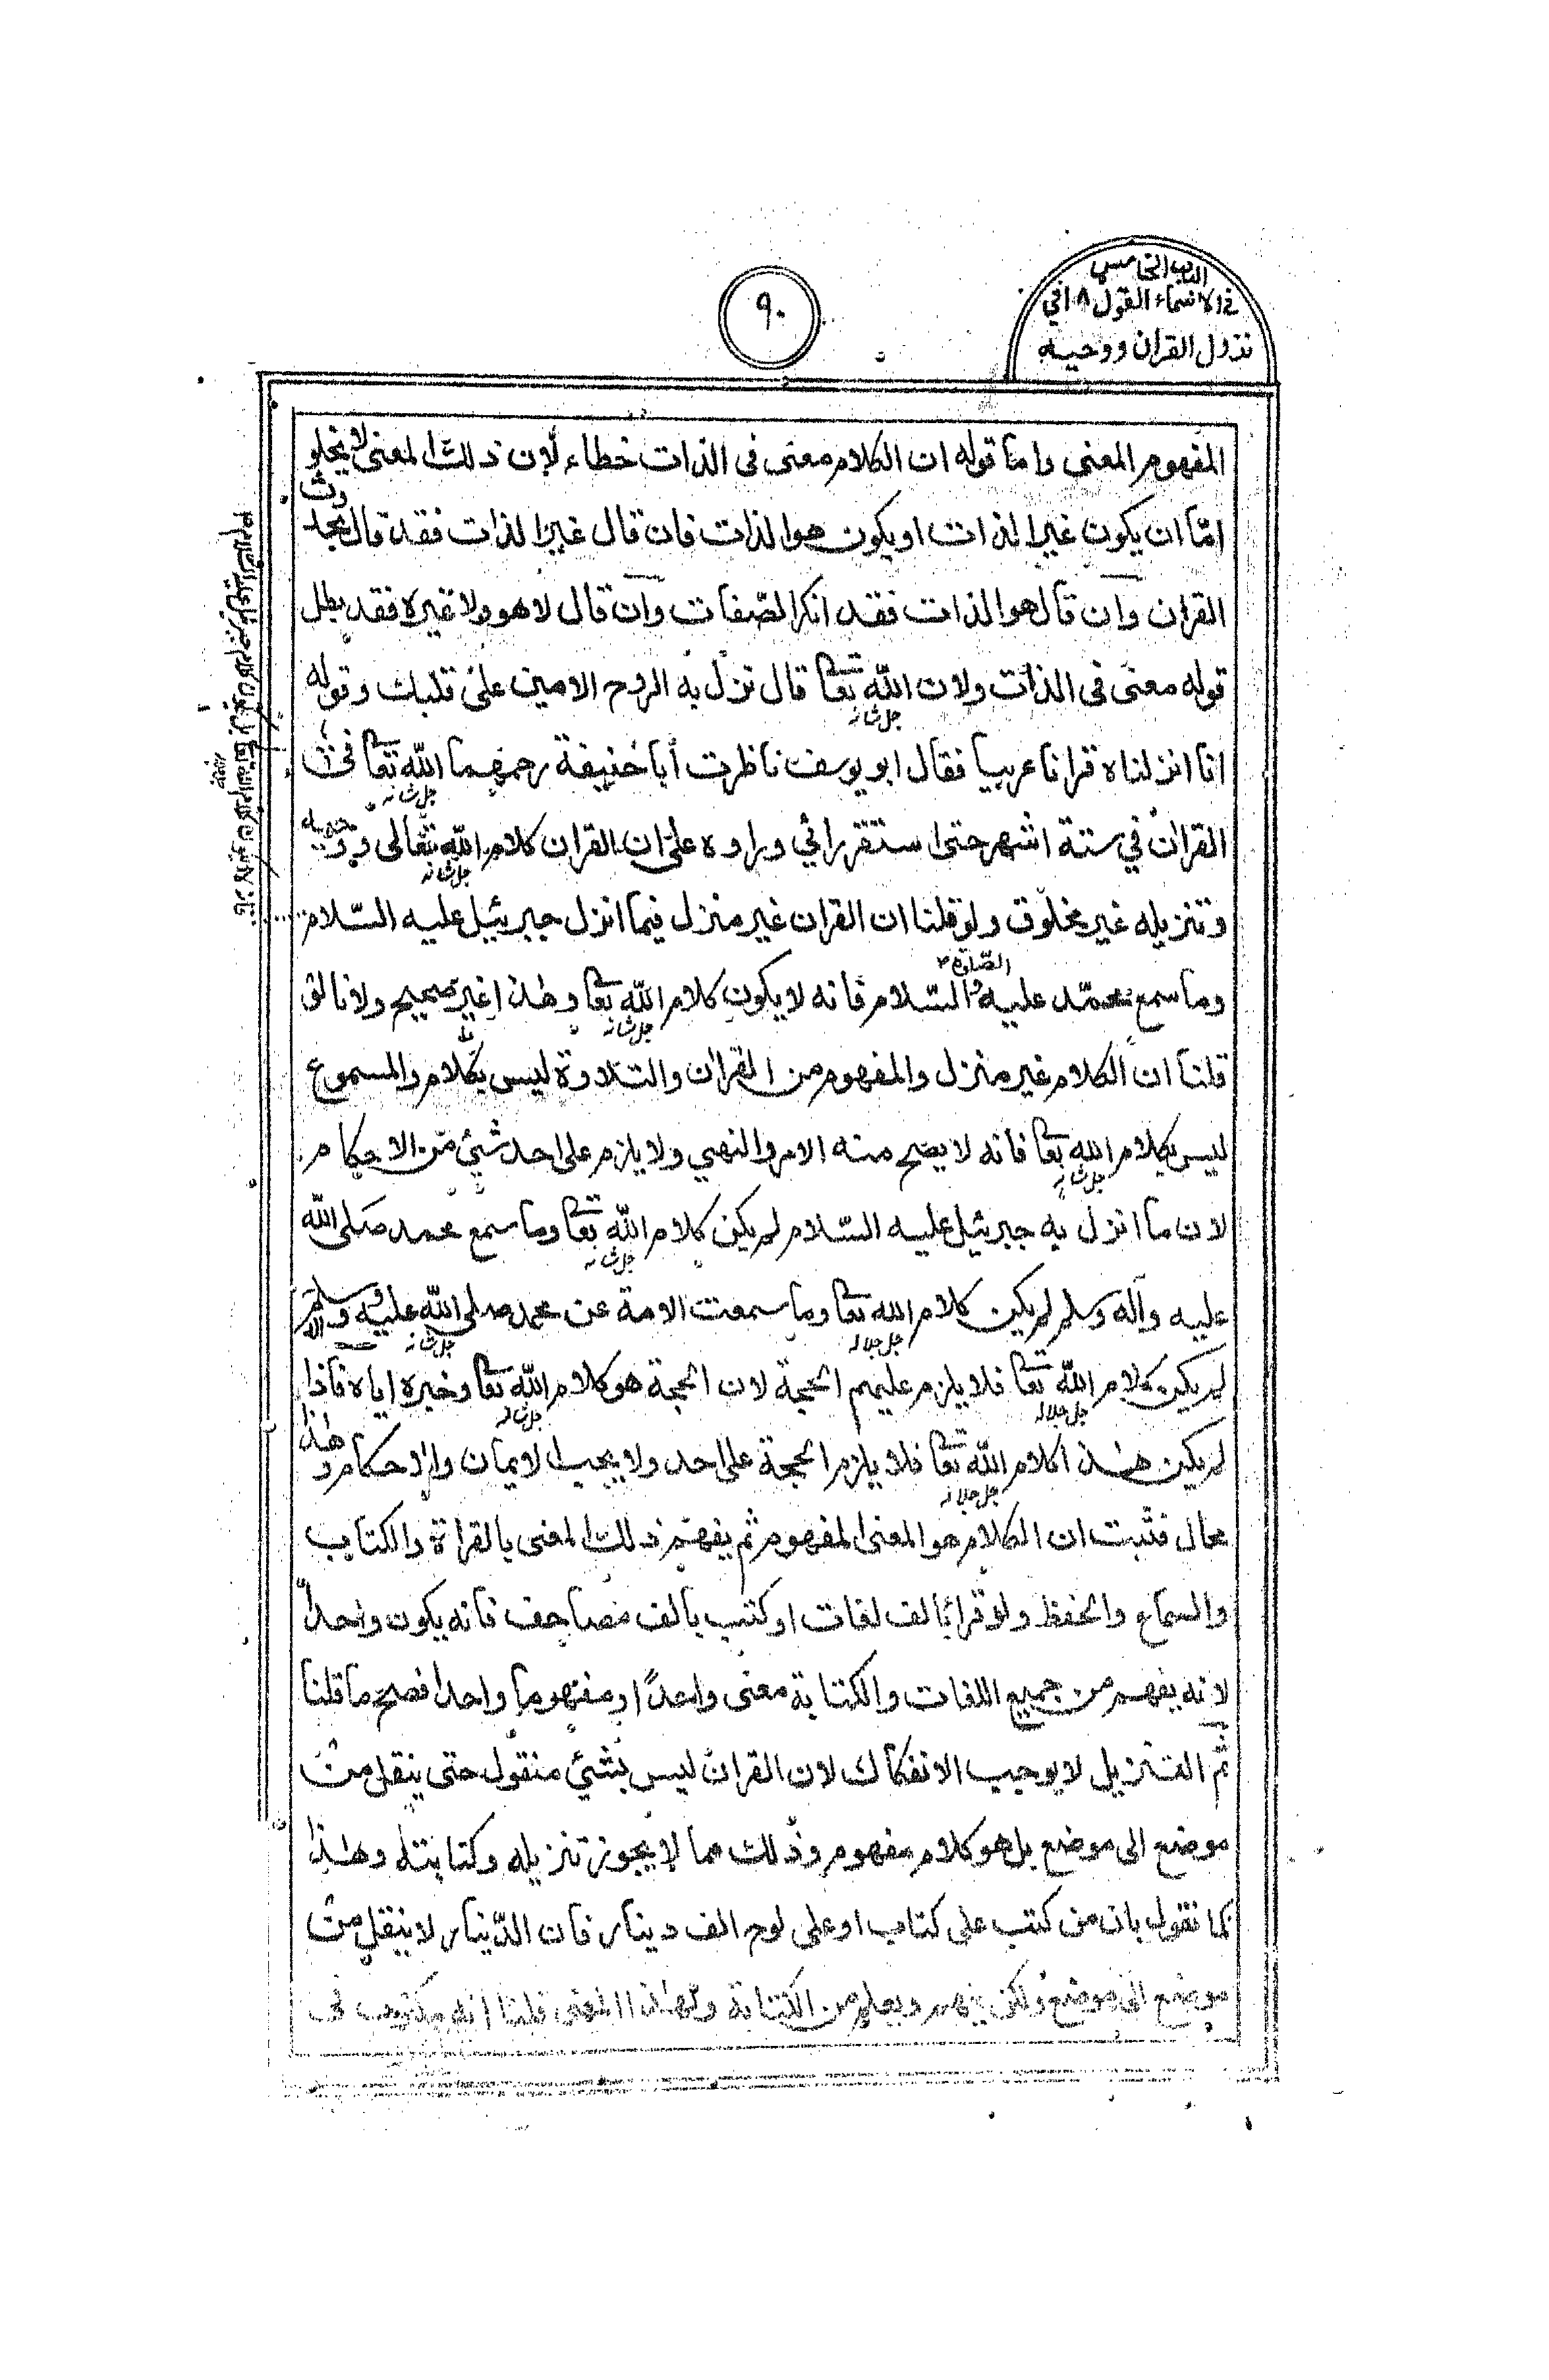 الباب الخامس
في الاسماء القول ١٨ في
نزول القران ووحيه
٩٠
المفهوم المعنى واما قوله ان الكلام معنى فى الذات خطاء لان ذلك المعنى لا يخلو
امّا ان يكون غير الذات او يكون هو الذات فان قال غير الذات فقد قال بحدوث
القران وان قال هو الذات فقد انكر الصّفات وان قال لا هو ولا غيره فقد بطل
قوله معنى فى الذات ولان اللّه تعا جل شانه قال نزل به الروح الامين على قلبك وقوله
انا انزلناه قرانا عربيا فقال ابو يوسف ناظرت أبا حنيفة رحمهما اللّه تعا جل شانه فى
القران في ستة اشهر حتى استقر رائي وراوه على ان القران كلام اللّه تعالى جل شانه ووحيه
وتنزيله غير مخلوق ولو قلنا ان القران غير منزل فيما انزل جبريئيل عليه السّلام
وما سمع محمّد عليه الصّلوة والسّلام فانه لا يكون كلام اللّه تعا جل شانه وهذا غير صحيح ولانا لو
قلنا ان الكلام غير منزل والمفهوم من القران والتلاوة ليس بكلام والمسموع
ليس بكلام الله تعا جل شانه فانه لا يصح منه الامر والنهي ولا يلزم على احد شيئ من الاحكام
لان ما انزل به جبريئيل عليه السّلام لم يكن كلام اللّه تعا جل شانه وما سمع محمد صلى اللّه
عليه وآله وسلم لم يكن كلام الله تعا جل جلاله وما سمعت الامة عن محمد صلى اللّه عليه وآله وسلم
لم يكن كلام اللّه تعا جل جلاله فلا يلزم عليهم الحجة لان الحجة هو كلام اللّه تعا جل شانه وخبره اياه فاذا
لم يكن هذا كلام اللّه تعا جل جلاله فلا يلزم الحجة على احد ولا يجب الايمان والاحكام وهذا
محال فثبت ان الكلام هو المعنى المفهوم ثم يفهم ذلك المعنى بالقراة والكتاب
والسماع والحفظ ولو قرائ بالف لغات او كتب بالف مصاحف فانه يكون واحدا
لانه يفهم من جميع اللغات والكتابة معنى واحدًا ومفهوما واحدا فصح ما قلنا
ثم التنزيل لا يوجب الانفكاك لان القران ليس بشيئ منقول حتى ينقل من
موضع الى موضع بل هو كلام مفهوم وذلك مما لا يجوز تنزيله وكتابته وهذا
كما نقول بان من كتب على كتاب او على لوح الف دينار فان الدّينار لا ينقل من
موضع الى موضع ولكن يفهم ويعلم من الكتابة ولهذا المعنى قلنا انه مكتوب فى